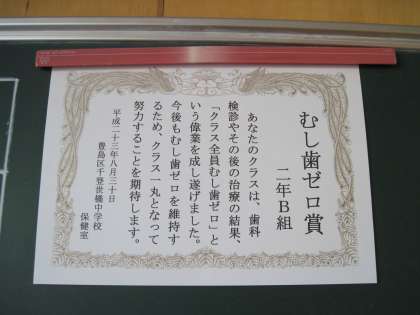 むし歯ゼロ賞
二年B組
あなたのクラスは、歯科
検診やその後の治療の結果、
「クラス全員むし歯ゼロ」と
いう偉業を成し遂げました。
今後もむし歯ゼロを維持す
るため、クラス一丸となって
努力することを期待します。
平成二十三年八月三十日
豊島区千登世橋中学校
保健室